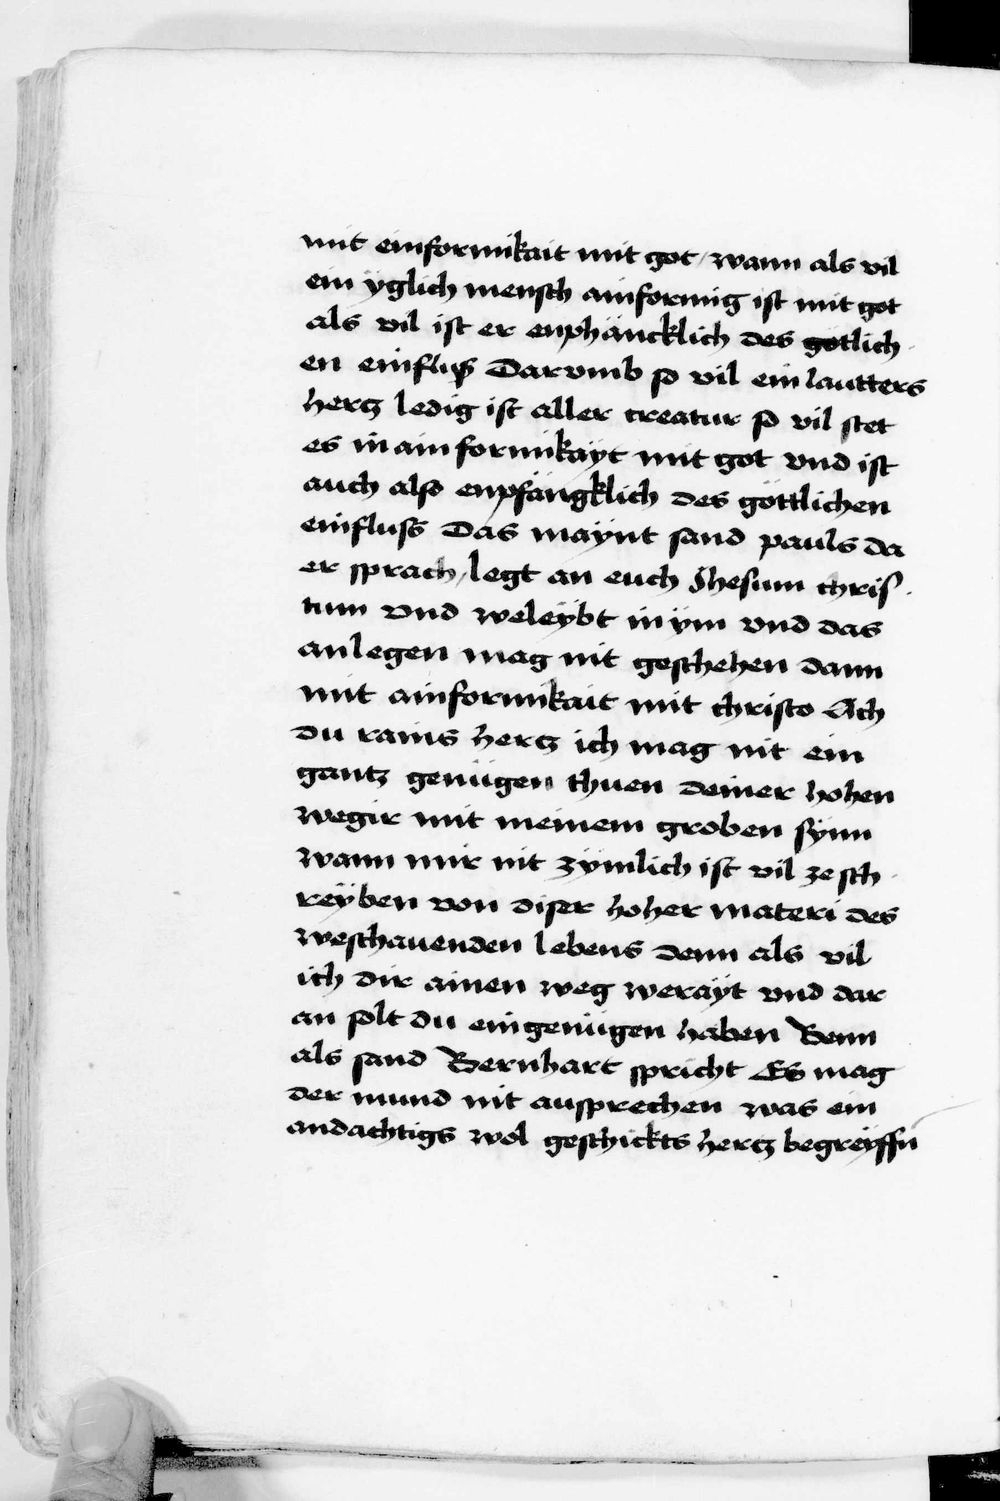 mit einformikait mit got / wann als vil
ein yglich mensch ainformig ist mit got
als vil ist er enphäncklich des gotlich
en einflus Darvmb so vil ein lautters
hertz ledig ist aller creatur so vil stet
es in ainformikayt mit got vnd ist
auch also enpfängklich des göttlichen
einfluss Das maÿnt sand pauls da
er sprach / legt an euch Jhesum chris
tum vnd weleÿbt in ÿm vnd das
anlegen mag nit geschehen dann
mit ainformikait mit christo Ach
du rains hertz ich mag nit ein
gantz genügen thuen deiner hohen
wegir mit meinem groben sÿnn
wann mir nit zÿmlich ist vil ze sch
reÿben von diser hoher materi des
weschauenden lebens denn als vil
ich dir ainen weg weraÿt vnd dar
an solt du ein genügen haben Wenn
als sand Bernhart spricht Es mag
der mund nit aussprechen was ein
andachtigs wol geschickts hertz begreÿffn